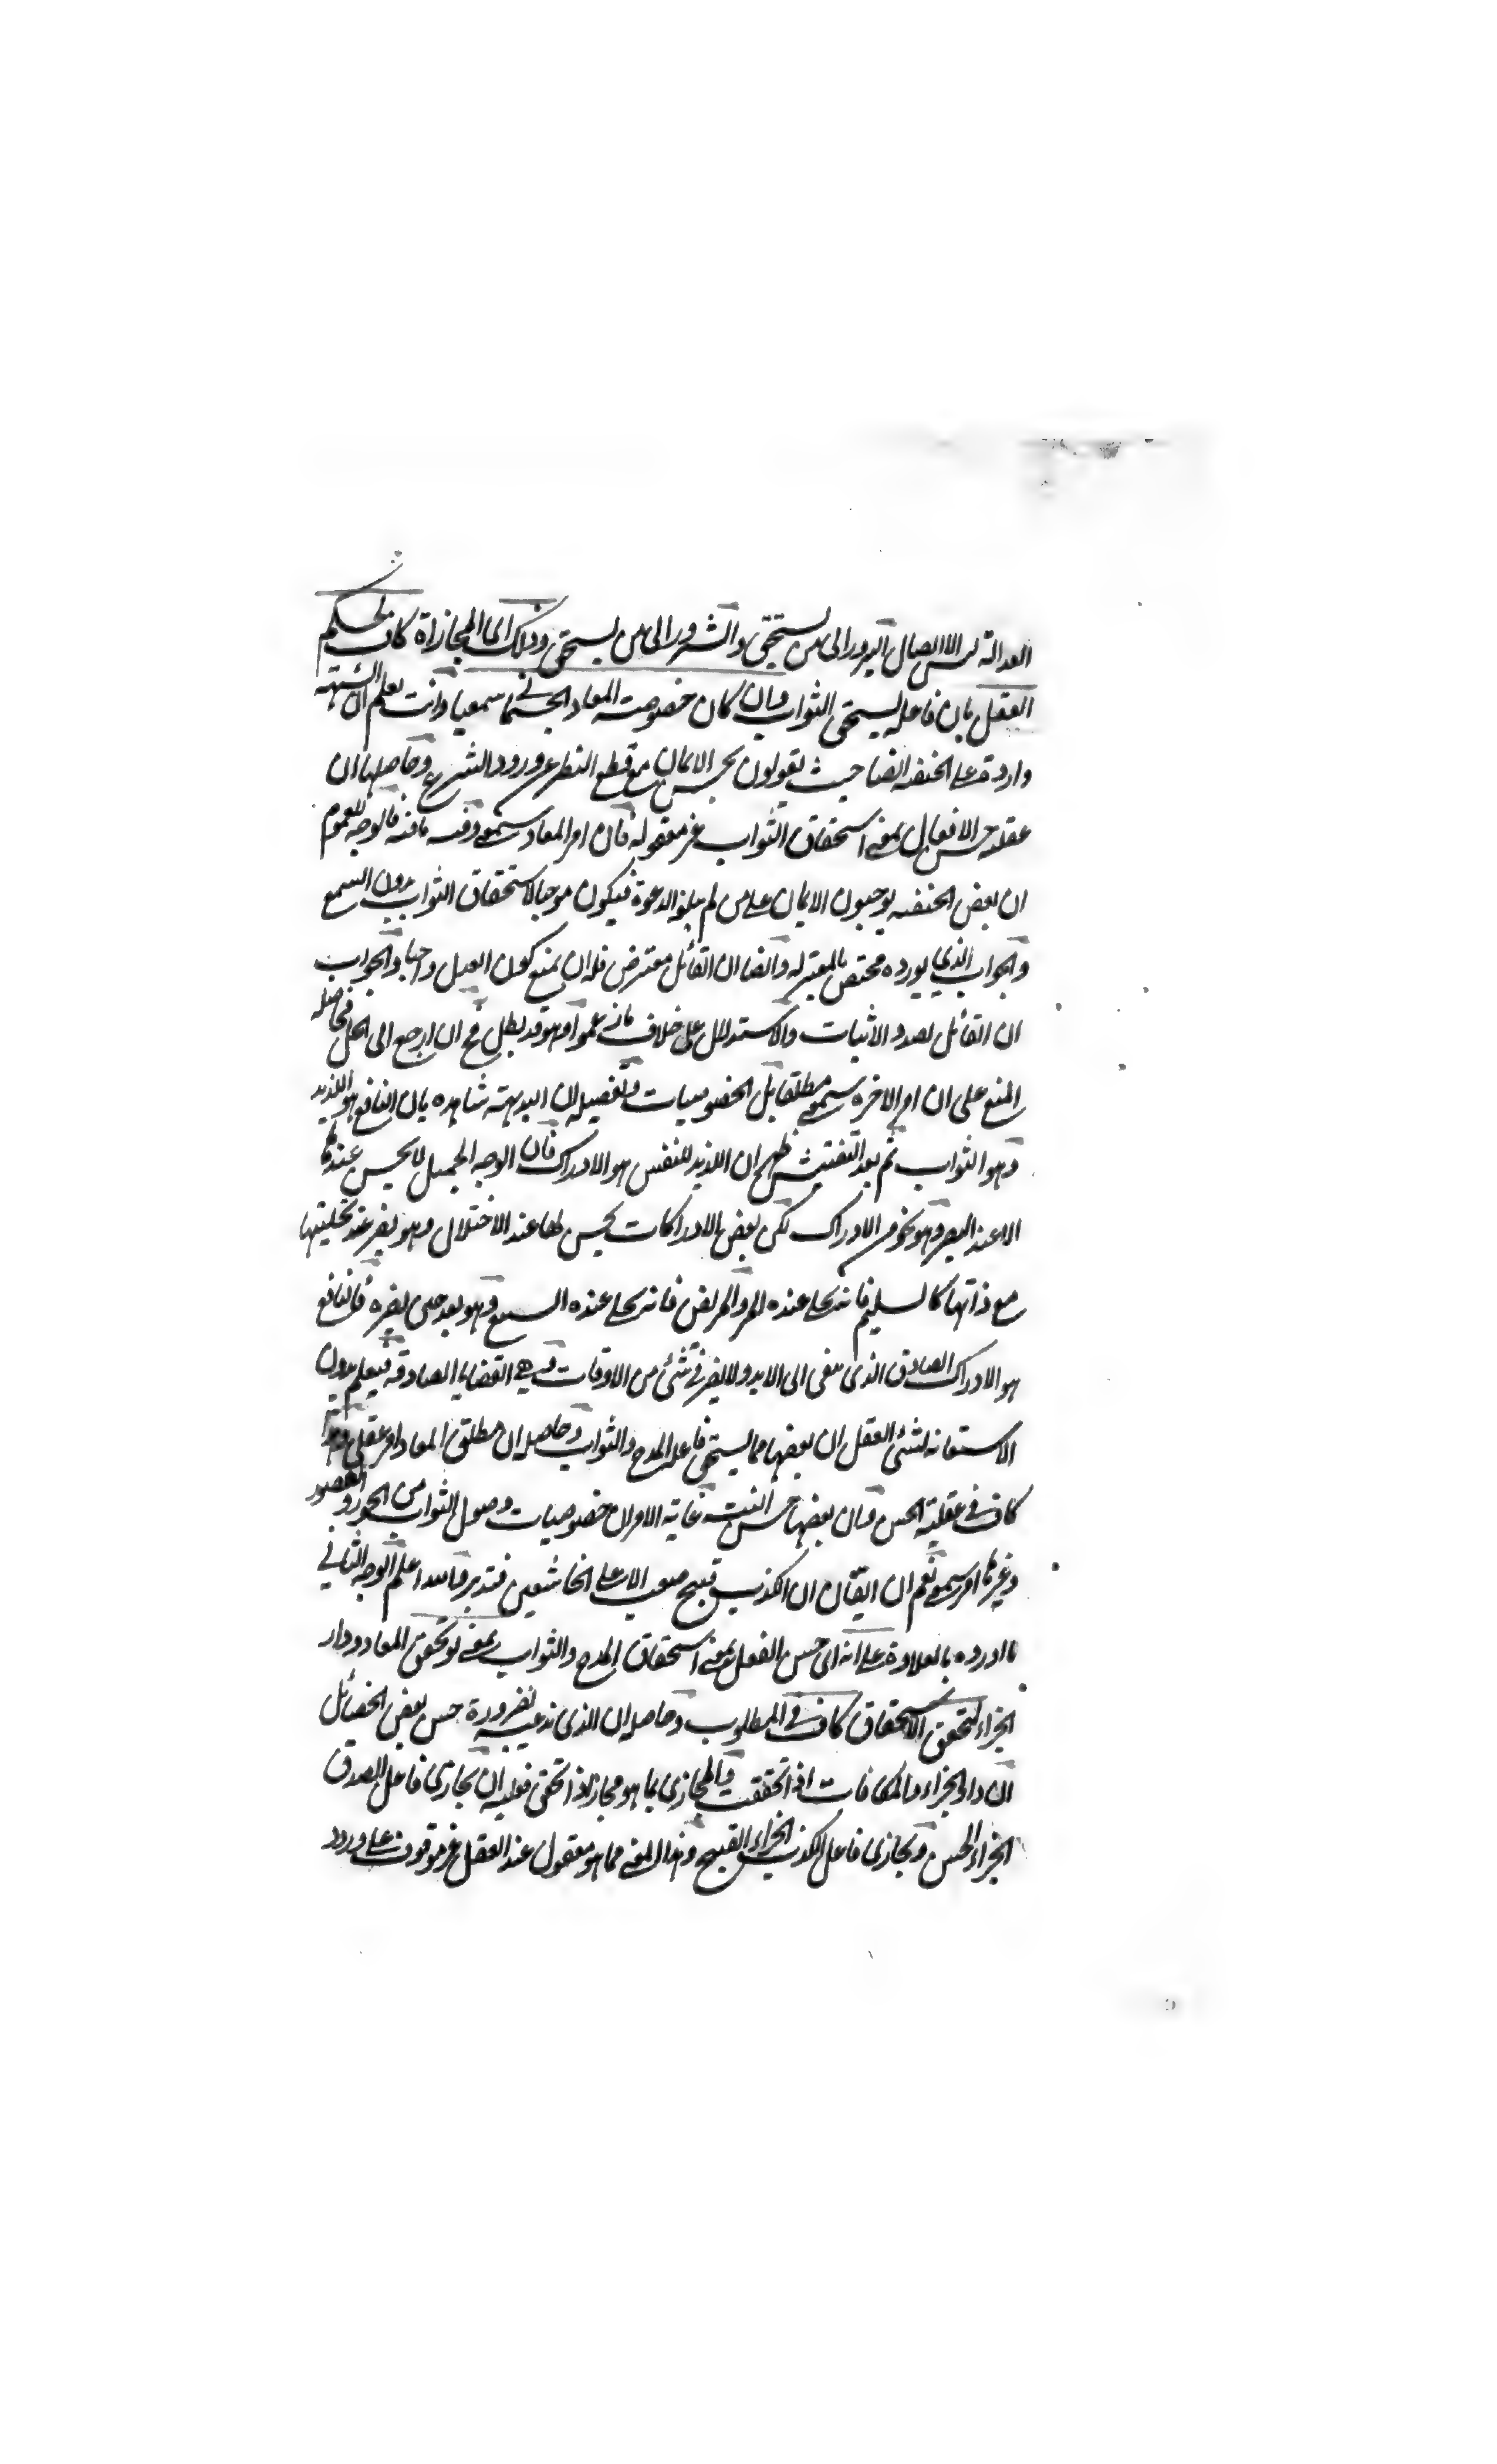 العدالة ليس الا ايصال السرور الى من يستحق والشرور الى من يستحق وذلك اى المجازاة كاف لحكم
العقل بان فاعله يستحق الثواب وان كان خصوصية المعاد الجسمانى سمعيا وانت تعلم ان الشبهة
واردة على الحنفيه ايضا حيث يقولون بحسن الايمان مع قطع النظر عن ورود الشرع وحاصلها ان
عقلية حسن الافعال بمعنى استحقاق الثواب غير معقولة فان امر المعاد سمعى وفيه مافيه فالوجه للعموم
ان بعض الحنفيه يوجبون الايمان على من لم يبلغه الدعوة فيكون موجبا لاستحقاق الثواب بدون السمع
والجواب الذى يورده مختص بالمعتزلة وايضا ان القائل معترض فله ان يمنع كون العدل واجبا والجواب
ان القائل بصدد الاثبات والاستدلال على خلاف ما زعموا وهو قد بطل فح ان ارجع الى الحل فحاصله
المنع على ان امر الاخره سمعى مطلقا بل الخصوصيات وتفصيله ان البديهة شاهدة بان النافع هو اللذيذ
وهو الثواب ثم بعد التفتيش ظهر ان اللذيذ للنفس هو الادراك فان الوجه الجميل لا يحسن عندها
الا عند البصر وهو نحو من الادراك لكن بعض الادراكات يحسن لها عند الاختلال وهو يضر عند تخليتها
مع ذاتها كالسليم فانه يحلى عنده المر والمريض فانه يحلى عنده السم وهو بعد حلى يضره فالنافع
هو الادراك الصادق الذى يبقى الى الابد ولا يضر فى شئ من الاوقات وهى القضايا الصادقة فيعلم بدون
الاستعانة لشئ العقل ان بعضها مما يستحق فاعله المدح والثواب وحاصله ان مطلق المعاد امر عقلى وهذا
كاف فى عقلية الحسن وان بعضها حسن البتة غاية الامر ان خصوصيات وصول الثواب من الحور والقصور
وغيرها امر سمعى نعم ان ايقان ان الكذب قبيح صعب الا على الخاشعين فتدبر والله اعلم الوجه الثانى
ما اورده بالعلاوة على انه اى حسن الفعل بمعنى استحقاق المدح والثواب بمعنى لو تحقق المعاد ودار
الجزاء لتحقق الاستحقاق كاف فى المطلوب وحاصله ان الذى ندعيه بضرورة حسن بعض الخصائل
ان دار الجزاء والمكافات اذا تحققت والمجازى بما هو مجاز اذا تحقق فعليه ان يجازى فاعل الصدق
الجزاء الحسن ويجازى فاعل الكذب الجزاء القبيح وهذا المعنى مما هو معقول عند العقل غير موقوف على ورود